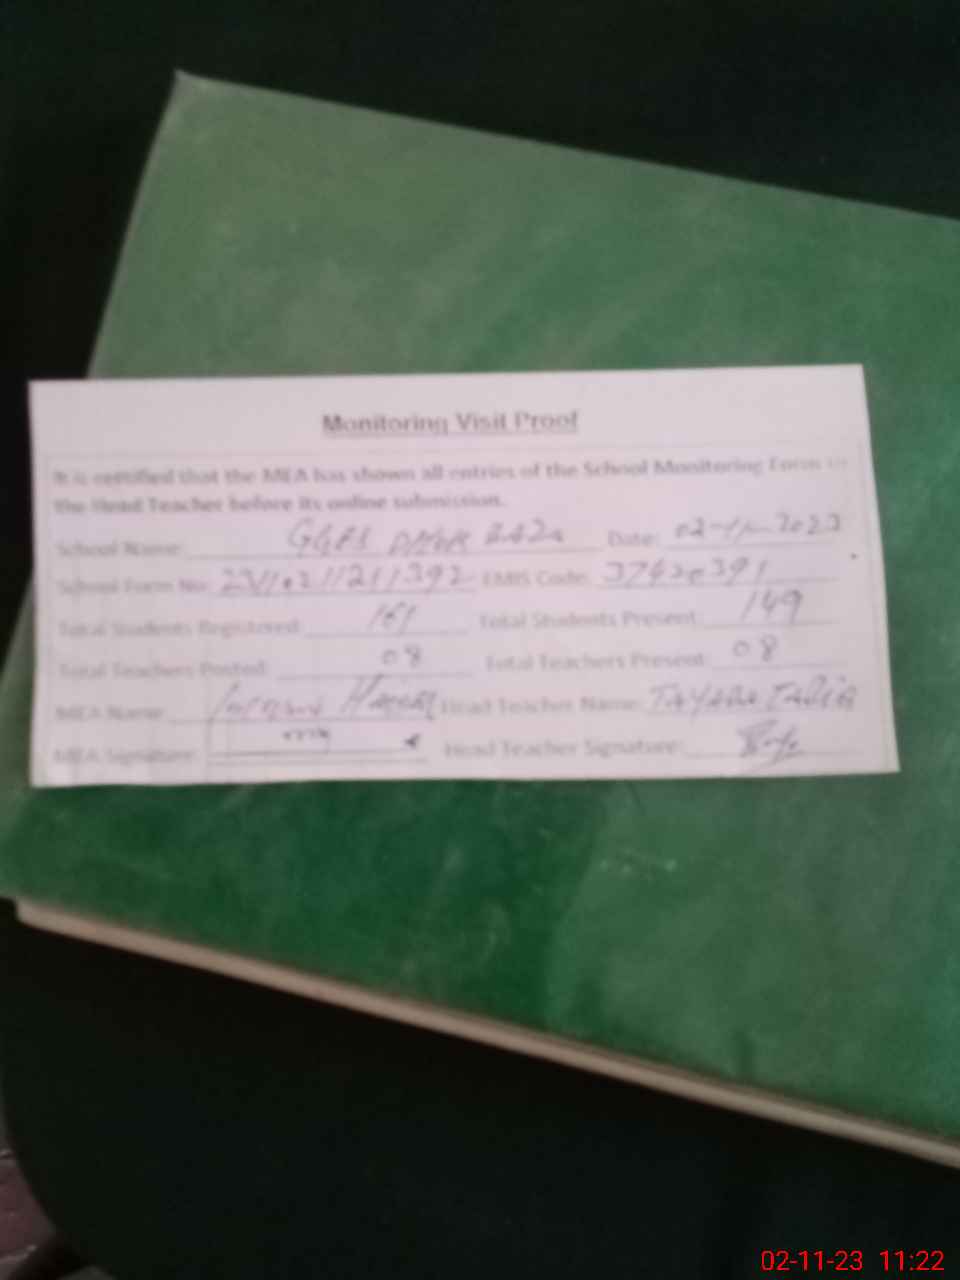 Monitoring Visit Proof
It is certified that the MEA has shown all entries of the School Monitoring Form to
the Head Teacher before its online submission.
School Name: GGES Date: 02-11-2023
School Form No: EMIS Code:
Total Students Registered: 161 Total Students Present: 149
Total Teachers Posted: 08 Total Teachers Present: 08
MEA Name: Head Teacher Name:
MEA Signature: Head Teacher Signature:
02-11-23 11:22